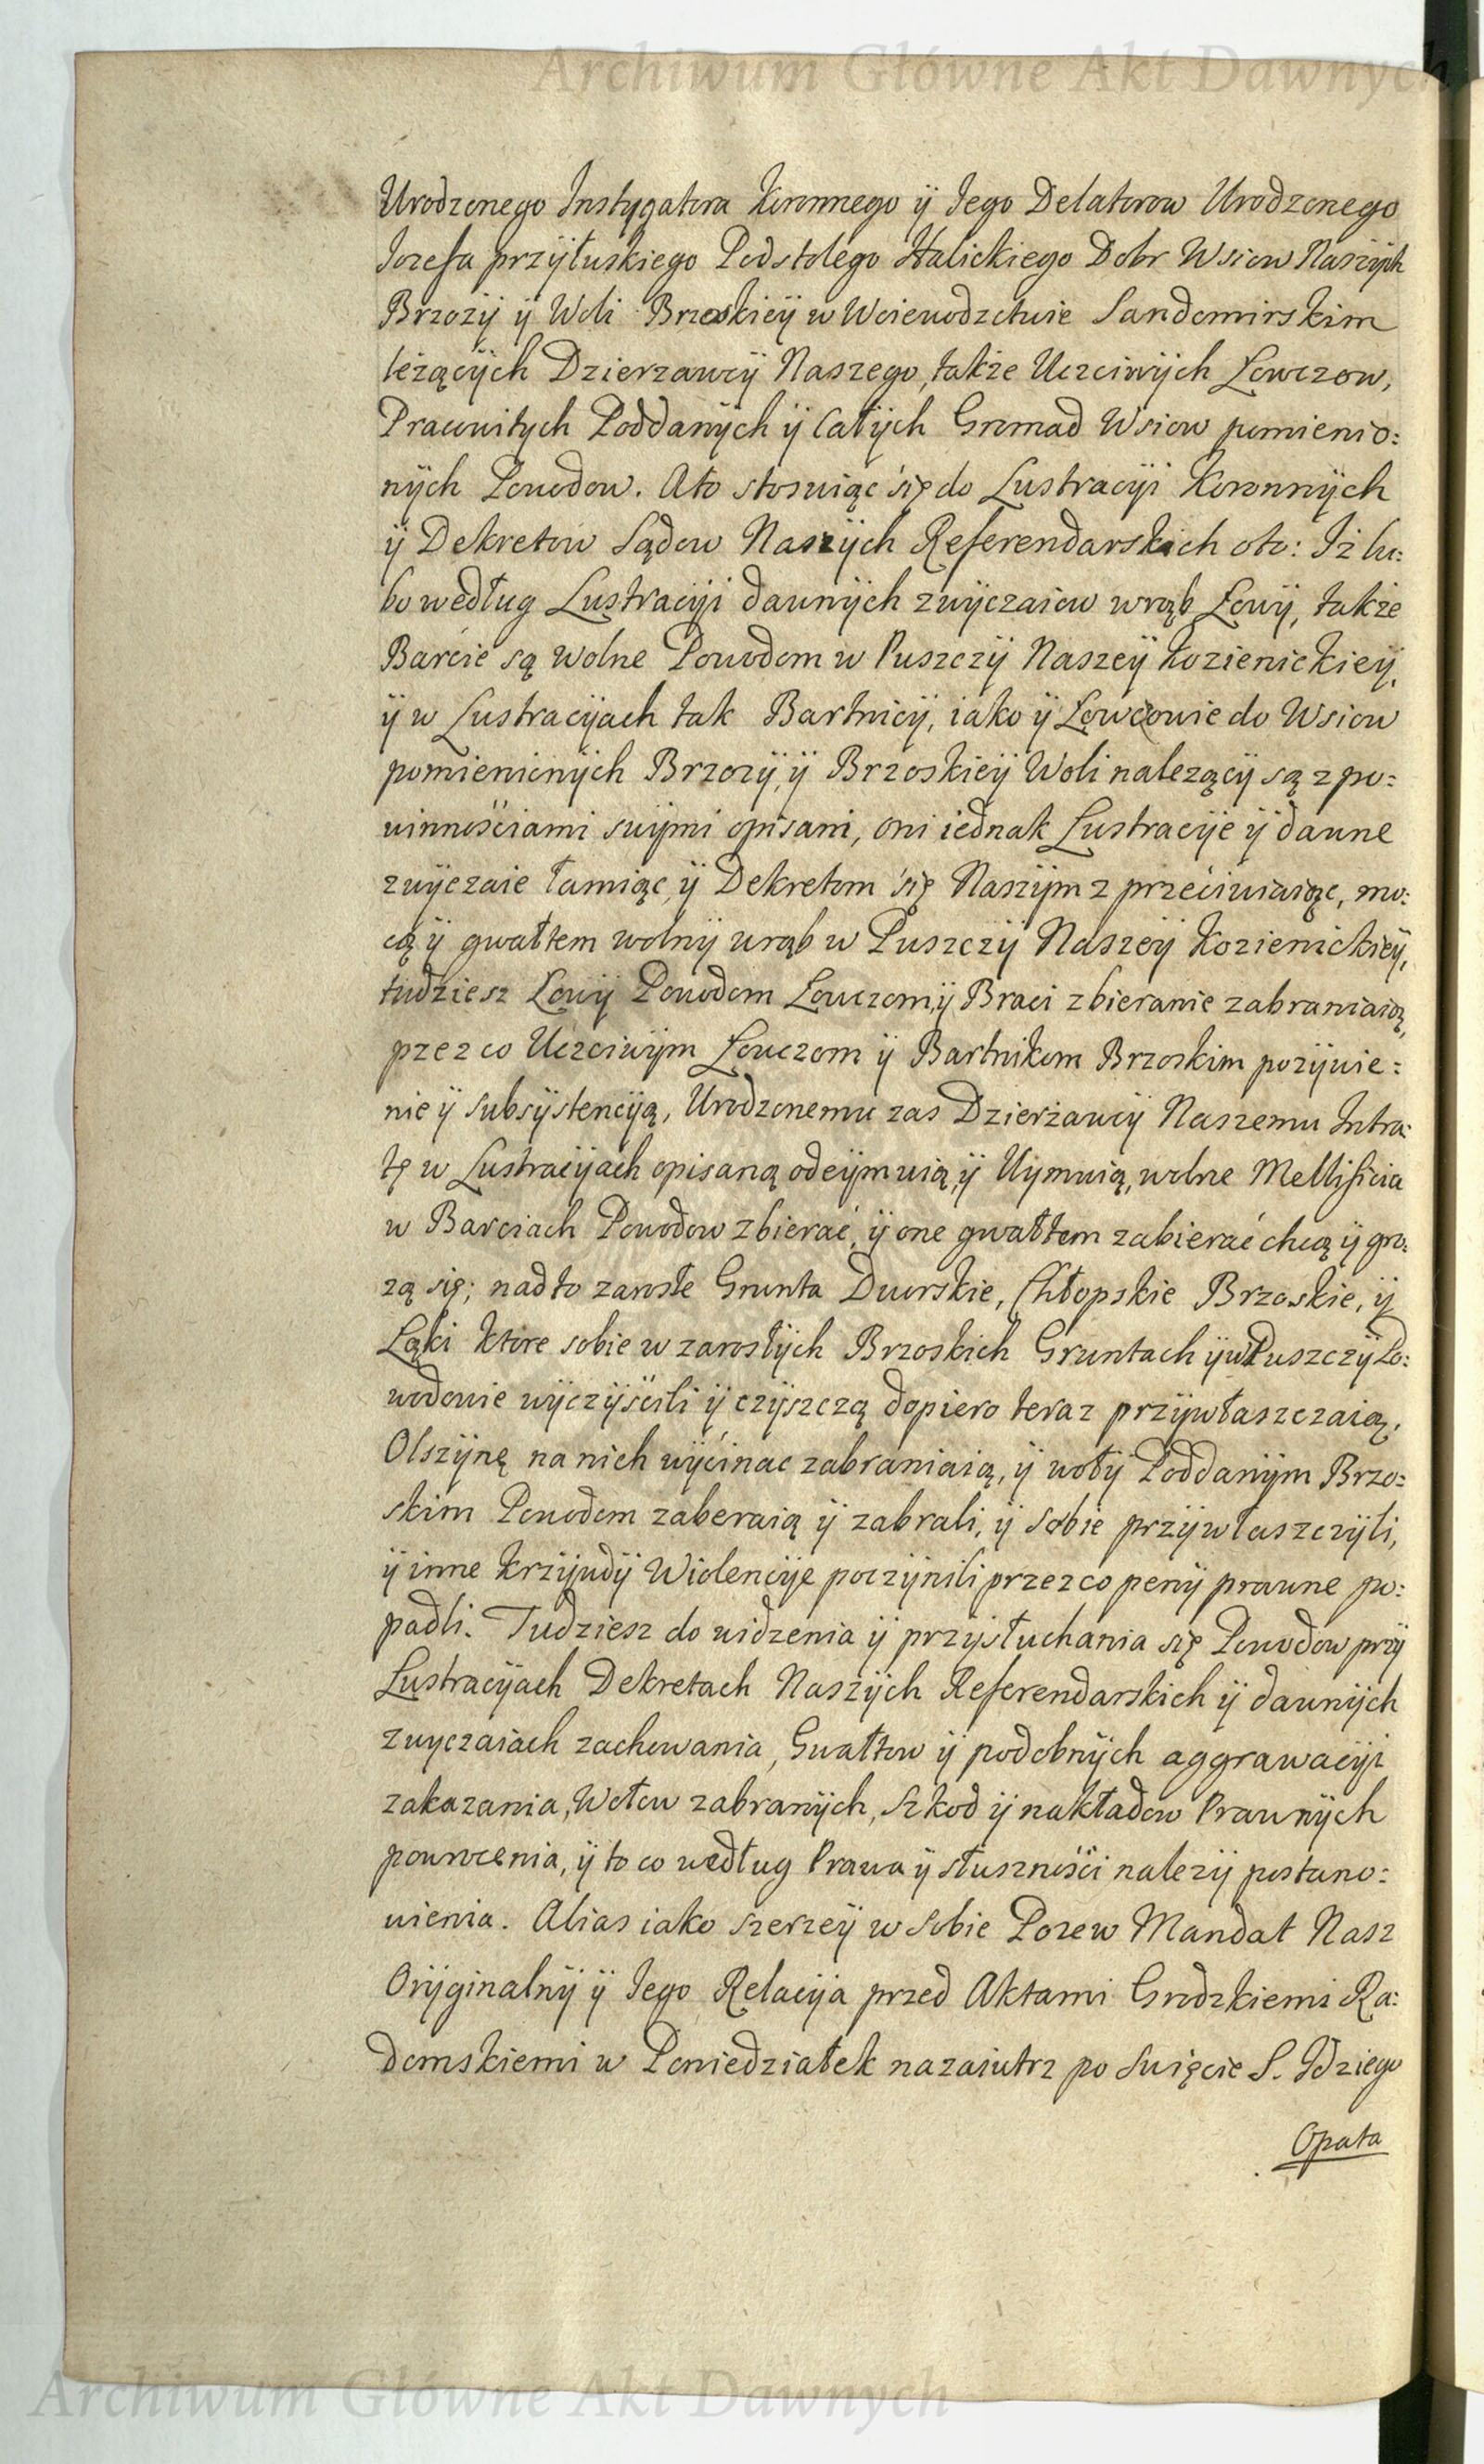 Archiwum Główne Akt Dawnych
Urodzonego Instygatora Koronnego ÿ Jego Delatorow Urodzonego
Jozefa przÿłuskiego Podstolego Halickiego Dobr Wsiow Naszÿch
Brzozÿ ÿ Woli Brzoskieÿ w Woiewodzctwie Sandomirskim
leżącÿch Dzierzawcÿ Naszego, także Uczciwÿch Łowczow,
Pracowitych Poddanÿch ÿ całÿch Gromad Wsiow pomienio:
nÿch Powodow. Ato stosuiąc się do Lustracÿi Koronnÿch
ÿ Dekretow Sądow Naszÿch Referendarskich oto: Iż lu:
bo według Lustracÿi dawnÿch zwÿczaiow wrąb Łowÿ, także
Barcie są wolne Powodom w Puszczÿ Naszeÿ Kozienickieÿ,
ÿ w Lustracÿach tak Bartnicÿ, iako ÿ Łowcowie do Wsiow
pomienionÿch Brzozÿ, ÿ Brzoskieÿ Woli nalezącÿ są z po:
winnościami swÿmi opisani, oni iednak Lustracÿe ÿ dawne
zwÿczaie łamiąc, ÿ Dekretom się Naszÿm z przeciwiaiąc, mo:
cą ÿ gwałtem wolnÿ wrąb w Puszczÿ Naszeÿ Kozienickieÿ,
tudziesz Łowÿ Powodom Łowczom, ÿ Braci zbieranie zabraniaią,
przez co Uczciwÿm Łowczom ÿ Bartnikom Brzoskim pozÿwie:
nie ÿ Subsÿstencÿą, Urodzonemu zas Dzierżawcÿ Naszemu Intra:
tę w Lustracÿach opisaną odeÿmuią, ÿ Uÿmuią, wolne Mellificia
w Barciach Powodow zbierać, ÿ one gwałtem zabierać chcą ÿ gro:
zą się; nadto zarosłe Grunta Dworskie, Chłopskie Brzoskie, ÿ
Łąki ktore sobie w zarosłÿch Brzoskich Gruntach ÿ w Puszczÿ Po:
wodowie wÿczÿścili ÿ czÿszczą dopiero teraz przÿwłaszczaią,
Olszÿnę na nich wÿcinac zabraniaią, ÿ wołÿ Poddanÿm Brzo:
skim Powodom zaberaią ÿ zabrali, ÿ sobie przÿwłaszczÿli,
ÿ inne krzÿwdÿ Wiolencÿe poczÿnili przez co penÿ prawne po:
padli. Tudziesz do widzenia ÿ przÿsłuchania się Powodow przÿ
Lustracÿach Dekretach Naszÿch Referendarskich ÿ dawnÿch
zwyczaiach zachowania, Gwałtow ÿ podobnÿch aggrawacÿi
zakazania, Wołow zabranÿch, Szkod ÿ nakładow Prawnÿch
powrocenia, ÿ to co według Prawa ÿ słuszności nalezÿ postano:
wienia. Alias iako szerzeÿ w sobie Pozew Mandat Nasz
Orÿginalnÿ ÿ Jego Relacÿa przed Aktami Grodzkiemi Ra:
domskiemi w Poniedziałek nazaiutrz po Swięcie S. Idziego
Opata
Archiwum Główne Akt Dawnych